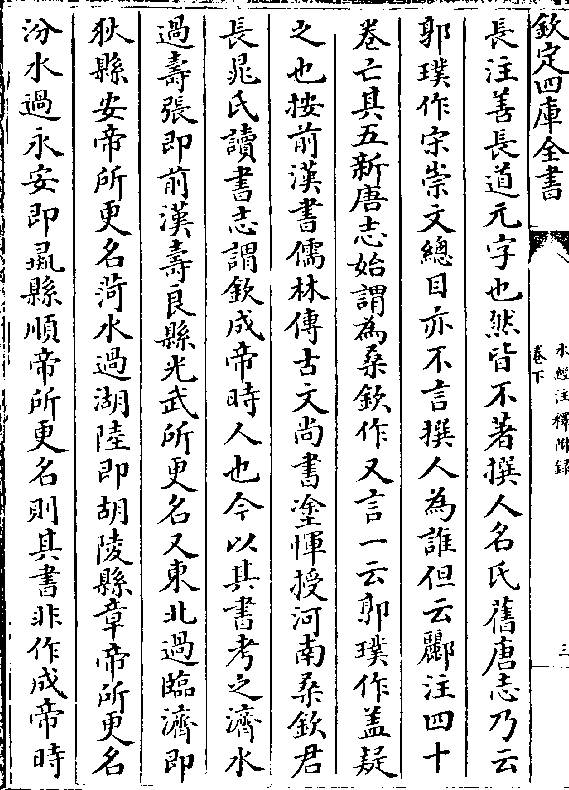 欽定四庫全書
水經注釋附録
卷下
三
長注善長道元字也然皆不著撰人名氏舊唐志乃云
郭璞作宋崇文總目亦不言撰人為誰但云酈注四十
卷亡其五新唐志始謂為桑欽作又言一云郭璞作盖疑
之也按前漢書儒林傳古文尚書塗惲授河南桑欽君
長晁氏讀書志謂欽成帝時人也今以其書考之濟水
過壽張即前漢壽良縣光武所更名又東北過臨濟即
狄縣安帝所更名菏水過湖陸即胡陵縣章帝所更名
汾水過永安即彘縣順帝所更名則其書非作成帝時